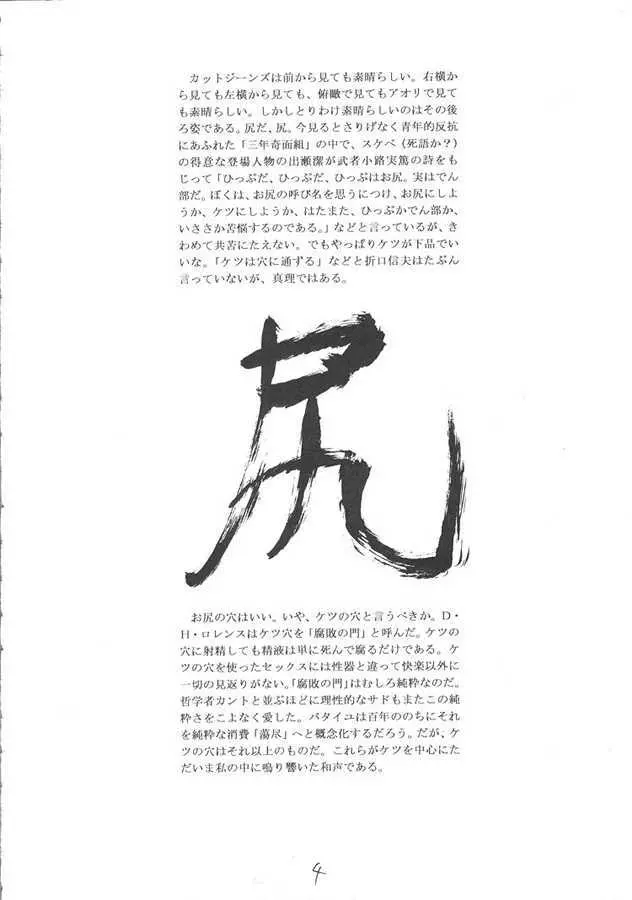 カットジーンズは前から見ても素晴らしい。右横か
ら見ても左横から見ても、俯瞰で見てもアオリで見て
も素晴らしい。しかしとりわけ素晴らしいのはその後
ろ姿である。尻だ、尻。今見るとさりげなく青年的反抗
にあふれた「三年奇面組」の中で、スケベ（死語か？）
の得意な登場人物の出瀬潔が武者小路実篤の詩をも
じって「ひっぷだ、ひっぷだ、ひっぷはお尻。実はでん
部だ。ぼくは、お尻の呼び名を思うにつけ、お尻にしよ
うか、ケツにしようか、はたまた、ひっぷかでん部か、
いささか苦悩するのである。」などと言っているが、き
わめて共苦にたえない。でもやっぱりケツが下品でい
いな。「ケツは穴に通ずる」などと折口信夫はたぶん
言っていないが、真理ではある。
尻
お尻の穴はいい。いや、ケツの穴と言うべきか。D・
H・ロレンスはケツ穴を「腐敗の門」と呼んだ。ケツの
穴に射精しても精液は単に死んで腐るだけである。ケ
ツの穴を使ったセックスには性器と違って快楽以外に
一切の見返りがない。「腐敗の門」はむしろ純粋なのだ。
哲学者カントと並ぶほどに理性的なサドもまたこの純
粋さをこよなく愛した。バタイユは百年ののちにそれ
を純粋な消費「蕩尽」へと概念化するだろう。だが、ケ
ツの穴はそれ以上のものだ。これらがケツを中心にた
だいま私の中に鳴り響いた和声である。
4